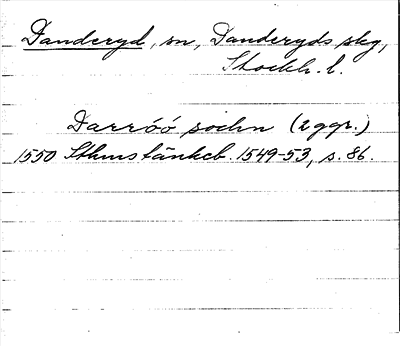 Danderyd, sn, Danderyds skg,
Stockh. l.
Darróó sochn (2 ggr.)
1550 Sthms tänkeb. 1549-53, s. 86.